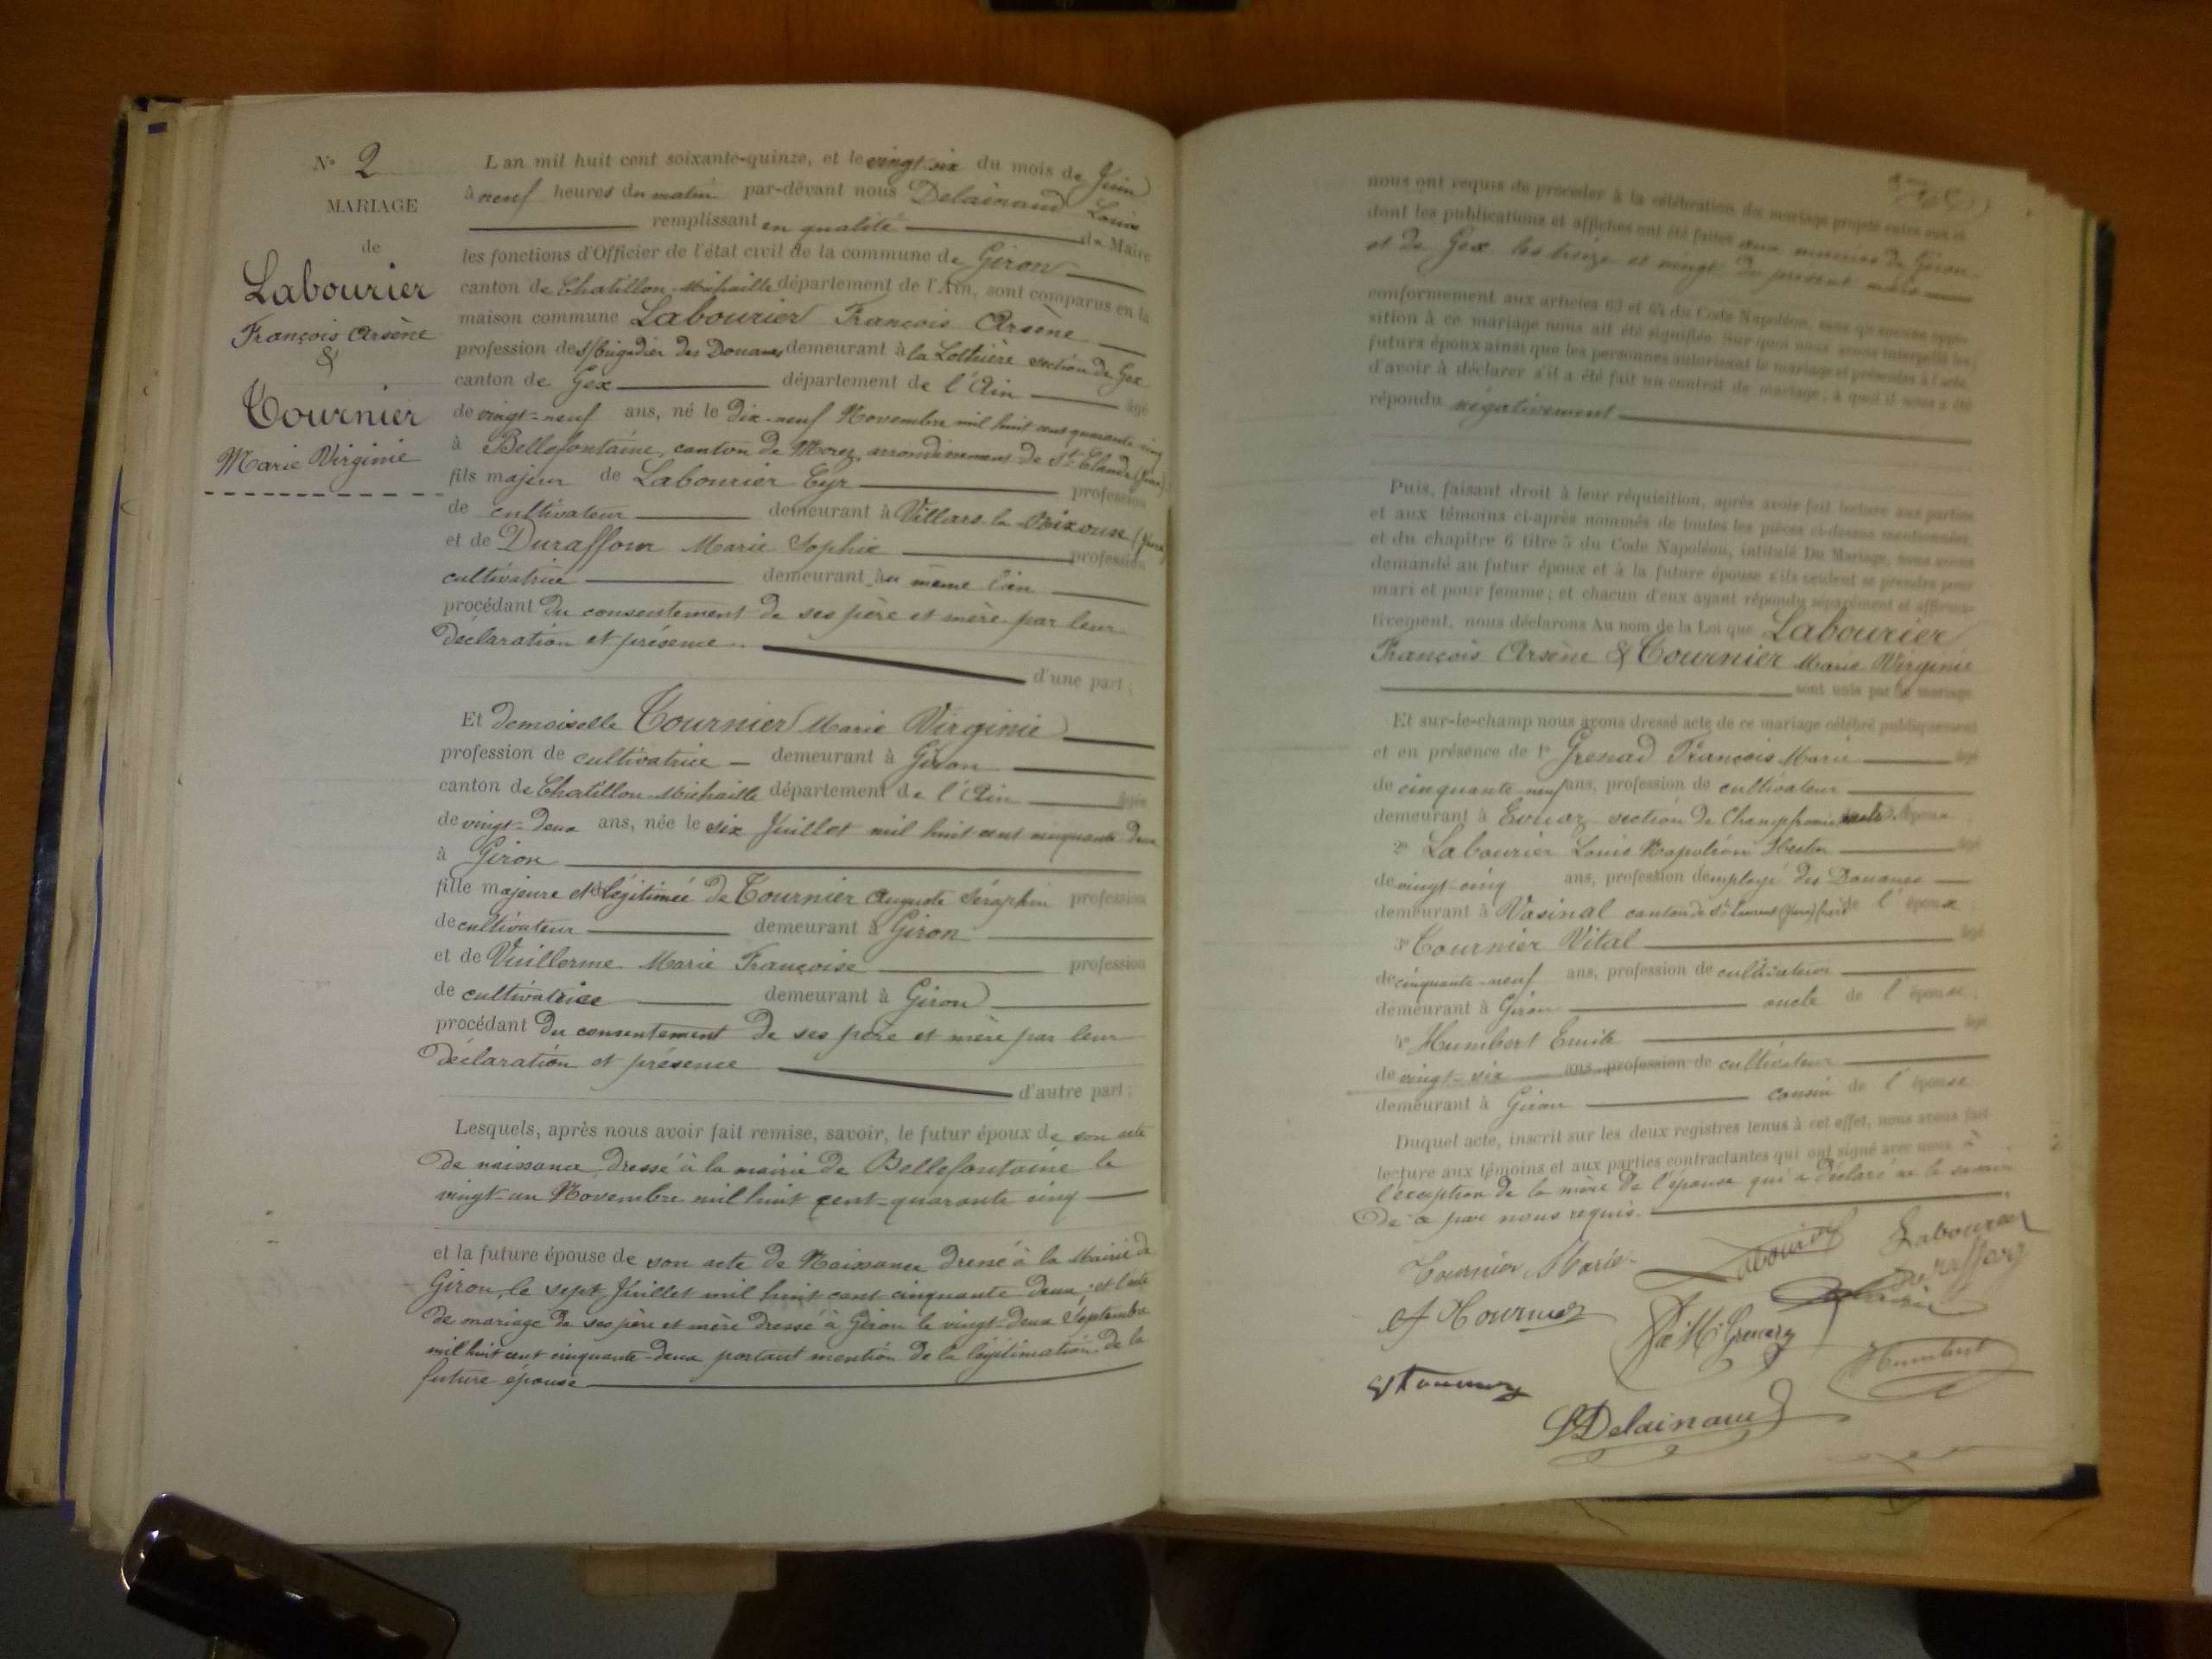 N° 2
MARIAGE
de
Labourier
François Arsène
&
Tournier
Marie Virginie
L'an mil huit cent soixante-quinze, et le vingt-six du mois de Juin
à neuf heures du matin par-devant nous Delainaud Louis
remplissant en qualité de Maire
les fonctions d'Officier de l'état civil de la commune de Giron
canton de Chatillon-Michaille département de l'Ain, sont comparus en la
maison commune Labourier François Arsène
profession de s/brigadier des Douanes demeurant à la section de Gex
canton de Gex département de l'Ain âgé
de vingt-neuf ans, né le dix-neuf Novembre mil huit cent quarante cinq
à Bellefontaine, canton de Morez, arrondissement de St Claude (Jura)
fils majeur de Labourier Cyr profession
de cultivateur demeurant à Villars la Rixouse (Jura)
et de Duraffour Marie Sophie profession
cultivatrice demeurant au même lieu
procédant du consentement de ses père et mère par leur
déclaration et présence
d'une part;
Et demoiselle Tournier Marie Virginie
profession de cultivatrice demeurant à Giron
canton de Chatillon-Michaille département de l'Ain âgée
de vingt-deux ans, née le six Juillet mil huit cent cinquante deux
à Giron
fille majeure et légitimée de Tournier Auguste Séraphin profession
de cultivateur demeurant à Giron
et de Vuillerme Marie Françoise profession
de cultivatrice demeurant à Giron
procédant du consentement de ses père et mère par leur
déclaration et présence
d'autre part;
Lesquels, après nous avoir fait remise, savoir, le futur époux de son acte
de naissance dressé à la mairie de Bellefontaine le
vingt-un Novembre mil huit cent-quarante cinq
et la future épouse de son acte de Naissance dressé à la Mairie de
Giron, le sept Juillet mil huit cent cinquante deux; et l'acte
de mariage de ses père et mère dressé à Giron le vingt-deux Septembre
mil huit cent cinquante-deux portant mention de la légitimation de la
future épouse
nous ont requis de procéder à la célébration du mariage projeté entre eux et
dont les publications et affiches ont été faites aux mairies de Giron
et de Gex les treize et vingt du présent mois
conformément aux articles 63 et 64 du Code Napoléon, sans qu'aucune oppo-
sition à ce mariage nous ait été signifiée. Sur quoi nous avons interpellé les
futurs époux ainsi que les personnes autorisant le mariage et présentes à l'acte,
d'avoir à déclarer s'il a été fait un contrat de mariage; à quoi il nous a été
répondu négativement
Puis, faisant droit à leur réquisition, après avoir fait lecture aux parties
et aux témoins ci-après nommés de toutes les pièces ci-dessus mentionnées,
et du chapitre 6 titre 5 du Code Napoléon, intitulé Du Mariage, nous avons
demandé au futur époux et à la future épouse s'ils veulent se prendre pour
mari et pour femme; et chacun d'eux ayant répondu séparément et affirma-
tivement, nous déclarons Au nom de la Loi que Labourier
François Arsène & Tournier Marie Virginie
sont unis par le mariage
Et sur-le-champ nous avons dressé acte de ce mariage célébré publiquement
et en présence de 1° Grenad François Marie âgé
de cinquante-neuf ans, profession de cultivateur
demeurant à section de Champfromier
2° Labourier Louis Napoléon Hector âgé
de vingt-cinq ans, profession d'employé des Douanes
demeurant à Vasinal canton de St Laurent (Jura) frère de l'époux
3° Tournier Vital âgé
de cinquante-neuf ans, profession de cultivateur
demeurant à Giron oncle de l'épouse
4° Humbert Emile âgé
de vingt-six ans, profession de cultivateur
demeurant à Giron cousin de l'épouse
Duquel acte, inscrit sur les deux registres tenus à cet effet, nous avons fait
lecture aux témoins et aux parties contractantes qui ont signé avec nous à
l'exception de la mère de l'épouse qui a déclaré ne le savoir
de ce par nous requis.
Tournier Marie
Labourier
Labourier
Duraffourg
A Tournier
F M Grenard
Humbert
V Tournier
L Delainaud